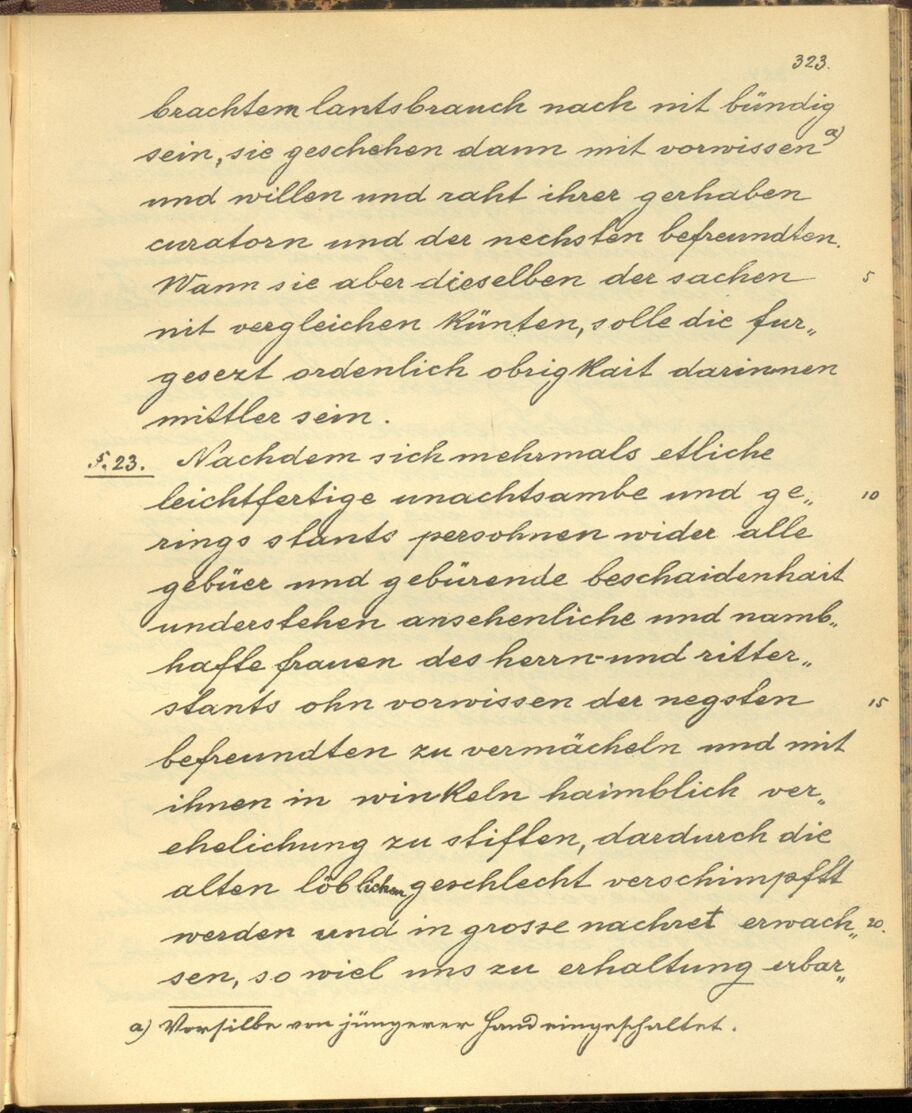 323.
brachtem lantsbrauch nach nit bündig
sein, sie geschehen dann mit vorwissen a)
und willen und raht ihrer gerhaben
curatorn und der nechsten befreundten.
Wann sie aber dieselben der sachen 5
nit vergleichen künten, solle die fur„
gesezt ordenlich obrigkait darinnen
mittler sein.
§. 23. Nachdem sich mehrmals etliche
leichtfertige unachtsambe und ge„ 10
rings stants persohnen wider alle
gebüer und gebürende beschaidenhait
understehen ansehenliche und namb„
hafte frauen des herrn- und ritter„
stants ohn vorwissen der negsten 15
befreundten zu vermächeln und mit
ihnen in winkeln haimblich ver„
ehelichung zu stiften, dardurch die
alten löblichen geschlecht verschimpft
werden und in grosse nachret erwach„ 20.
sen, so wiel uns zu erhaltung erbar„
a) Vorsilbe von jüngerer Hand eingeschaltet.